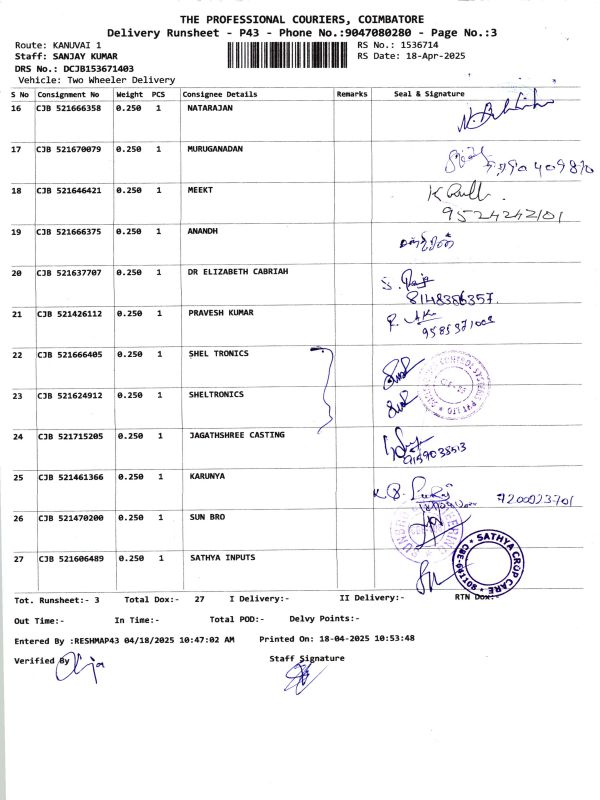 THE PROFESSIONAL COURIERS, COIMBATORE
Delivery Runsheet - P43 - Phone No.:9047080280 - Page No.:3
Route: KANUVAI 1
RS No.: 1536714
Staff: SANJAY KUMAR
RS Date: 18-Apr-2025
DRS No.: DCJB153671403
Vehicle: Two Wheeler Delivery
S No Consignment No Weight PCS Consignee Details Remarks Seal & Signature
16 CJB 521666358 0.250 1 NATARAJAN
17 CJB 521670079 0.250 1 MURUGANADAN
18 CJB 521646421 0.250 1 MEEKT
9524242101
19 CJB 521666375 0.250 1 ANANDH
20 CJB 521637707 0.250 1 DR ELIZABETH CABRIAH
8148386357.
21 CJB 521426112 0.250 1 PRAVESH KUMAR
22 CJB 521666405 0.250 1 SHEL TRONICS
23 CJB 521624912 0.250 1 SHELTRONICS
24 CJB 521715205 0.250 1 JAGATHSHREE CASTING
9159038513
25 CJB 521461366 0.250 1 KARUNYA
26 CJB 521470200 0.250 1 SUN BRO
27 CJB 521606489 0.250 1 SATHYA INPUTS
SATHYA CROP CARE
CBE-641108
Tot. Runsheet:- 3 Total Dox:- 27 I Delivery:- II Delivery:- RTN Dox:-
Out Time:- In Time:- Total POD:- Delvy Points:-
Entered By :RESHMAP43 04/18/2025 10:47:02 AM Printed On: 18-04-2025 10:53:48
Verified By
Staff Signature